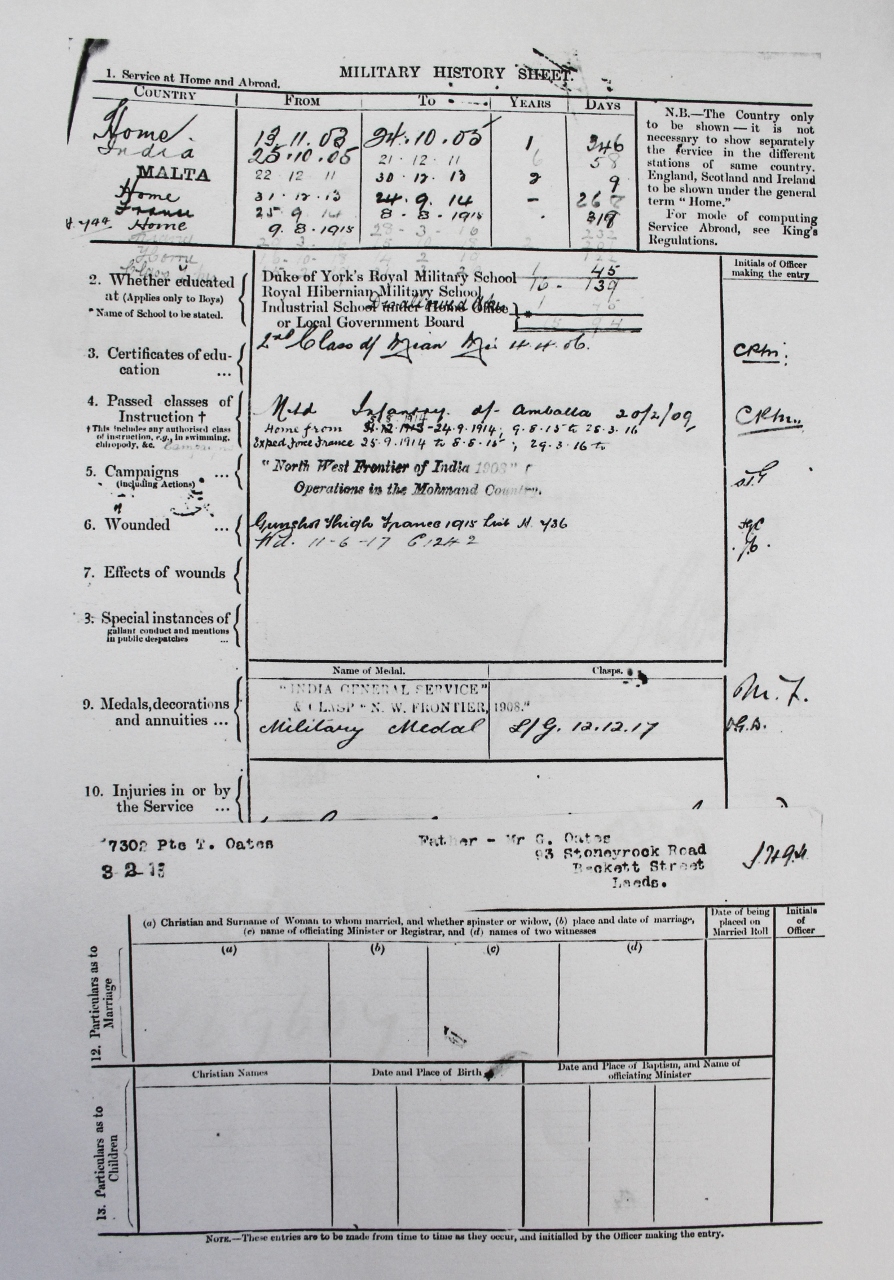 MILITARY HISTORY SHEET.
1. Service at Home and Abroad.
COUNTRY FROM TO YEARS DAYS
Home 13.11.03 24.10.05 1 346
India 25.10.05 21.12.11 6 58
MALTA 22 12 11 30 12 13 2 9
Home 31.12.13 24.9.14 - 267
France 25 9 14 8-8-1915 318
Home 9.8.1915 28-3-16
N.B.—The Country only
to be shown — it is not
necessary to show separately
the service in the different
stations of same country.
England, Scotland and Ireland
to be shown under the general
term "Home."
For mode of computing
Service Abroad, see King's
Regulations.
Initials of Officer
making the entry
2. Whether educated
at (Applies only to Boys)
*Name of School to be stated.
Duke of York's Royal Military School 1 45
Royal Hibernian Military School 139
Industrial School under Home Office
or Local Government Board
3. Certificates of edu-
cation ...
2nd Class d/ Mian Mir 4.4.06.
4. Passed classes of
Instruction †
†This includes any authorised class
of instruction, e.g., in swimming,
chiropody, &c.
Mtd Infantry d/- Amballa 20/2/09
Home from 31.12.1913-24.9.1914; 9.8.15 to 28.3.16
Exped Force France 25.9.1914 to 8.8.15; 29.3.16 to
5. Campaigns ...
(including Actions)
"North West Frontier of India 1908"
Operations in the Mohmand Country.
6. Wounded ...
Gunshot Thigh France 1915 List H. 436
Wd. 11-6-17 C1242
7. Effects of wounds
8. Special instances of
gallant conduct and mentions
in public despatches ...
Name of Medal. Clasps.
9. Medals, decorations
and annuities ...
"INDIA GENERAL SERVICE"
& CLASP "N. W. FRONTIER, 1908."
Military Medal L/G. 12.12.17
10. Injuries in or by
the Service ...
7302 Pte T. Oates
Father - Mr G. Oates
93 Stoneyrock Road
Beckett Street
Leeds.
(a) Christian and Surname of Woman to whom married, and whether spinster or widow, (b) place and date of marriage,
(c) name of officiating Minister or Registrar, and (d) names of two witnesses
Date of being
placed on
Married Roll
Initials
of
Officer
12. Particulars as to
Marriage
(a) (b) (c) (d)
13. Particulars as to
Children
Christian Names
Date and Place of Birth
Date and Place of Baptism, and Name of
officiating Minister
NOTE.—These entries are to be made from time to time as they occur, and initialled by the Officer making the entry.